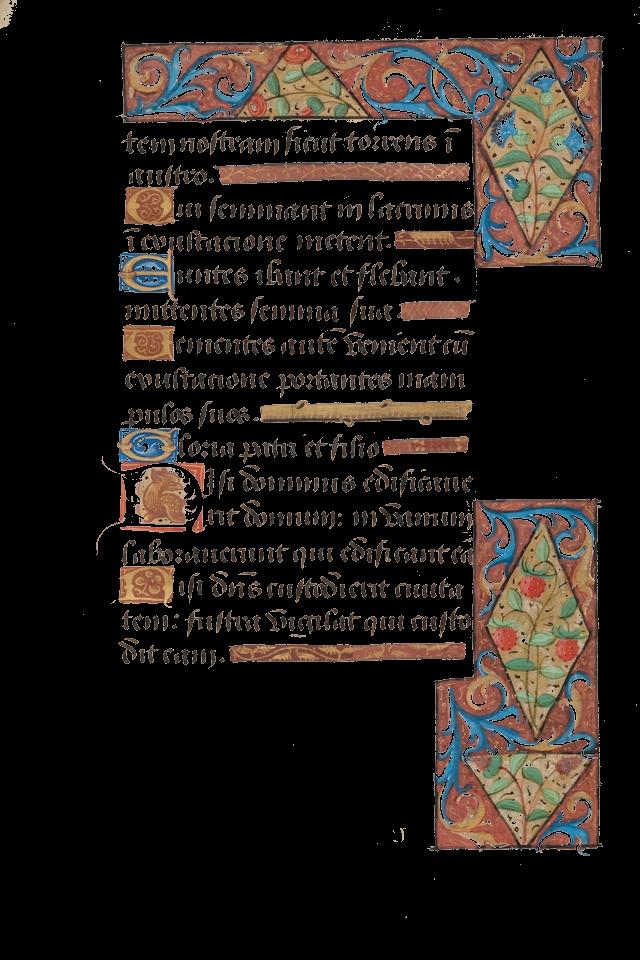 tem nostram sicut torrens ī
austro.
Qui seminant in lacrimis
ī exultacione metent.
Euntes ibant et flebant.
mittentes semina sua.
Uenientes autē venient cū
exultacione portantes mani
pulos suos.
Gloria patri et filio
Nisi dominus edificaue
rit domum: in vanum
laborauerunt qui edificant eā
Nisi dn̄s custodierit ciuita
tem: frustra vigilat qui custo
dit eam.